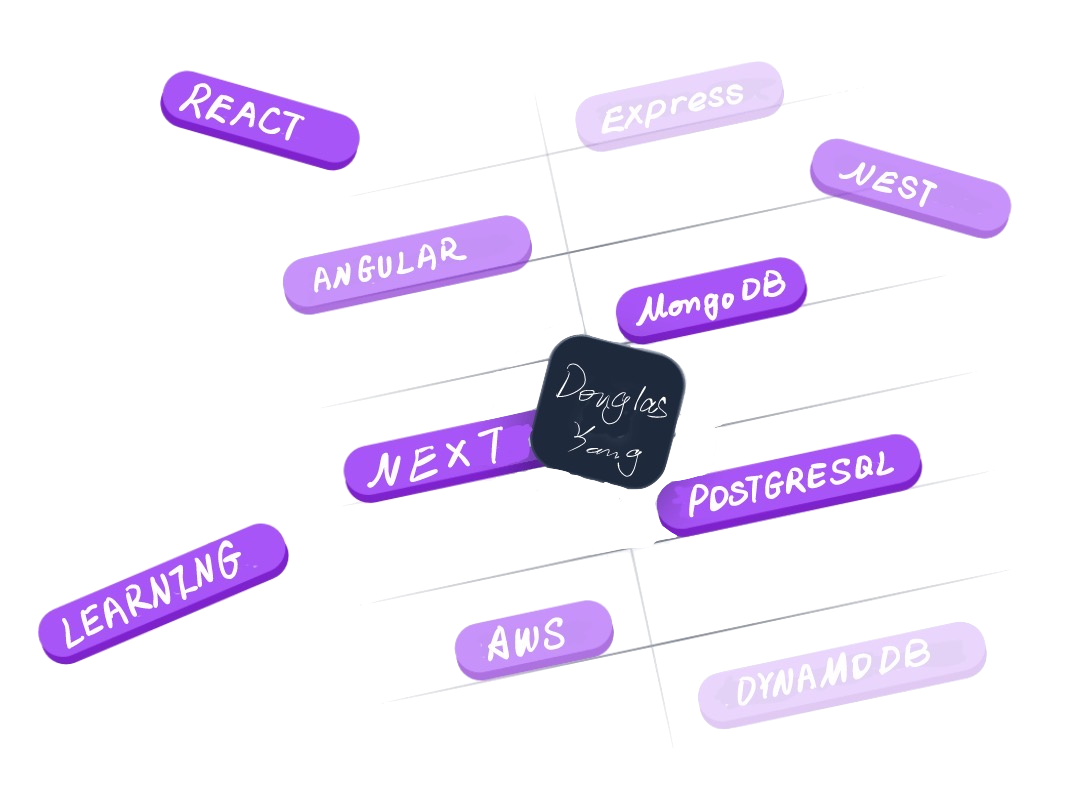 REACT
Express
NEST
ANGULAR
MongoDB
Douglas
Kang
NEXT
POSTGRESQL
LEARNING
AWS
DYNAMODB